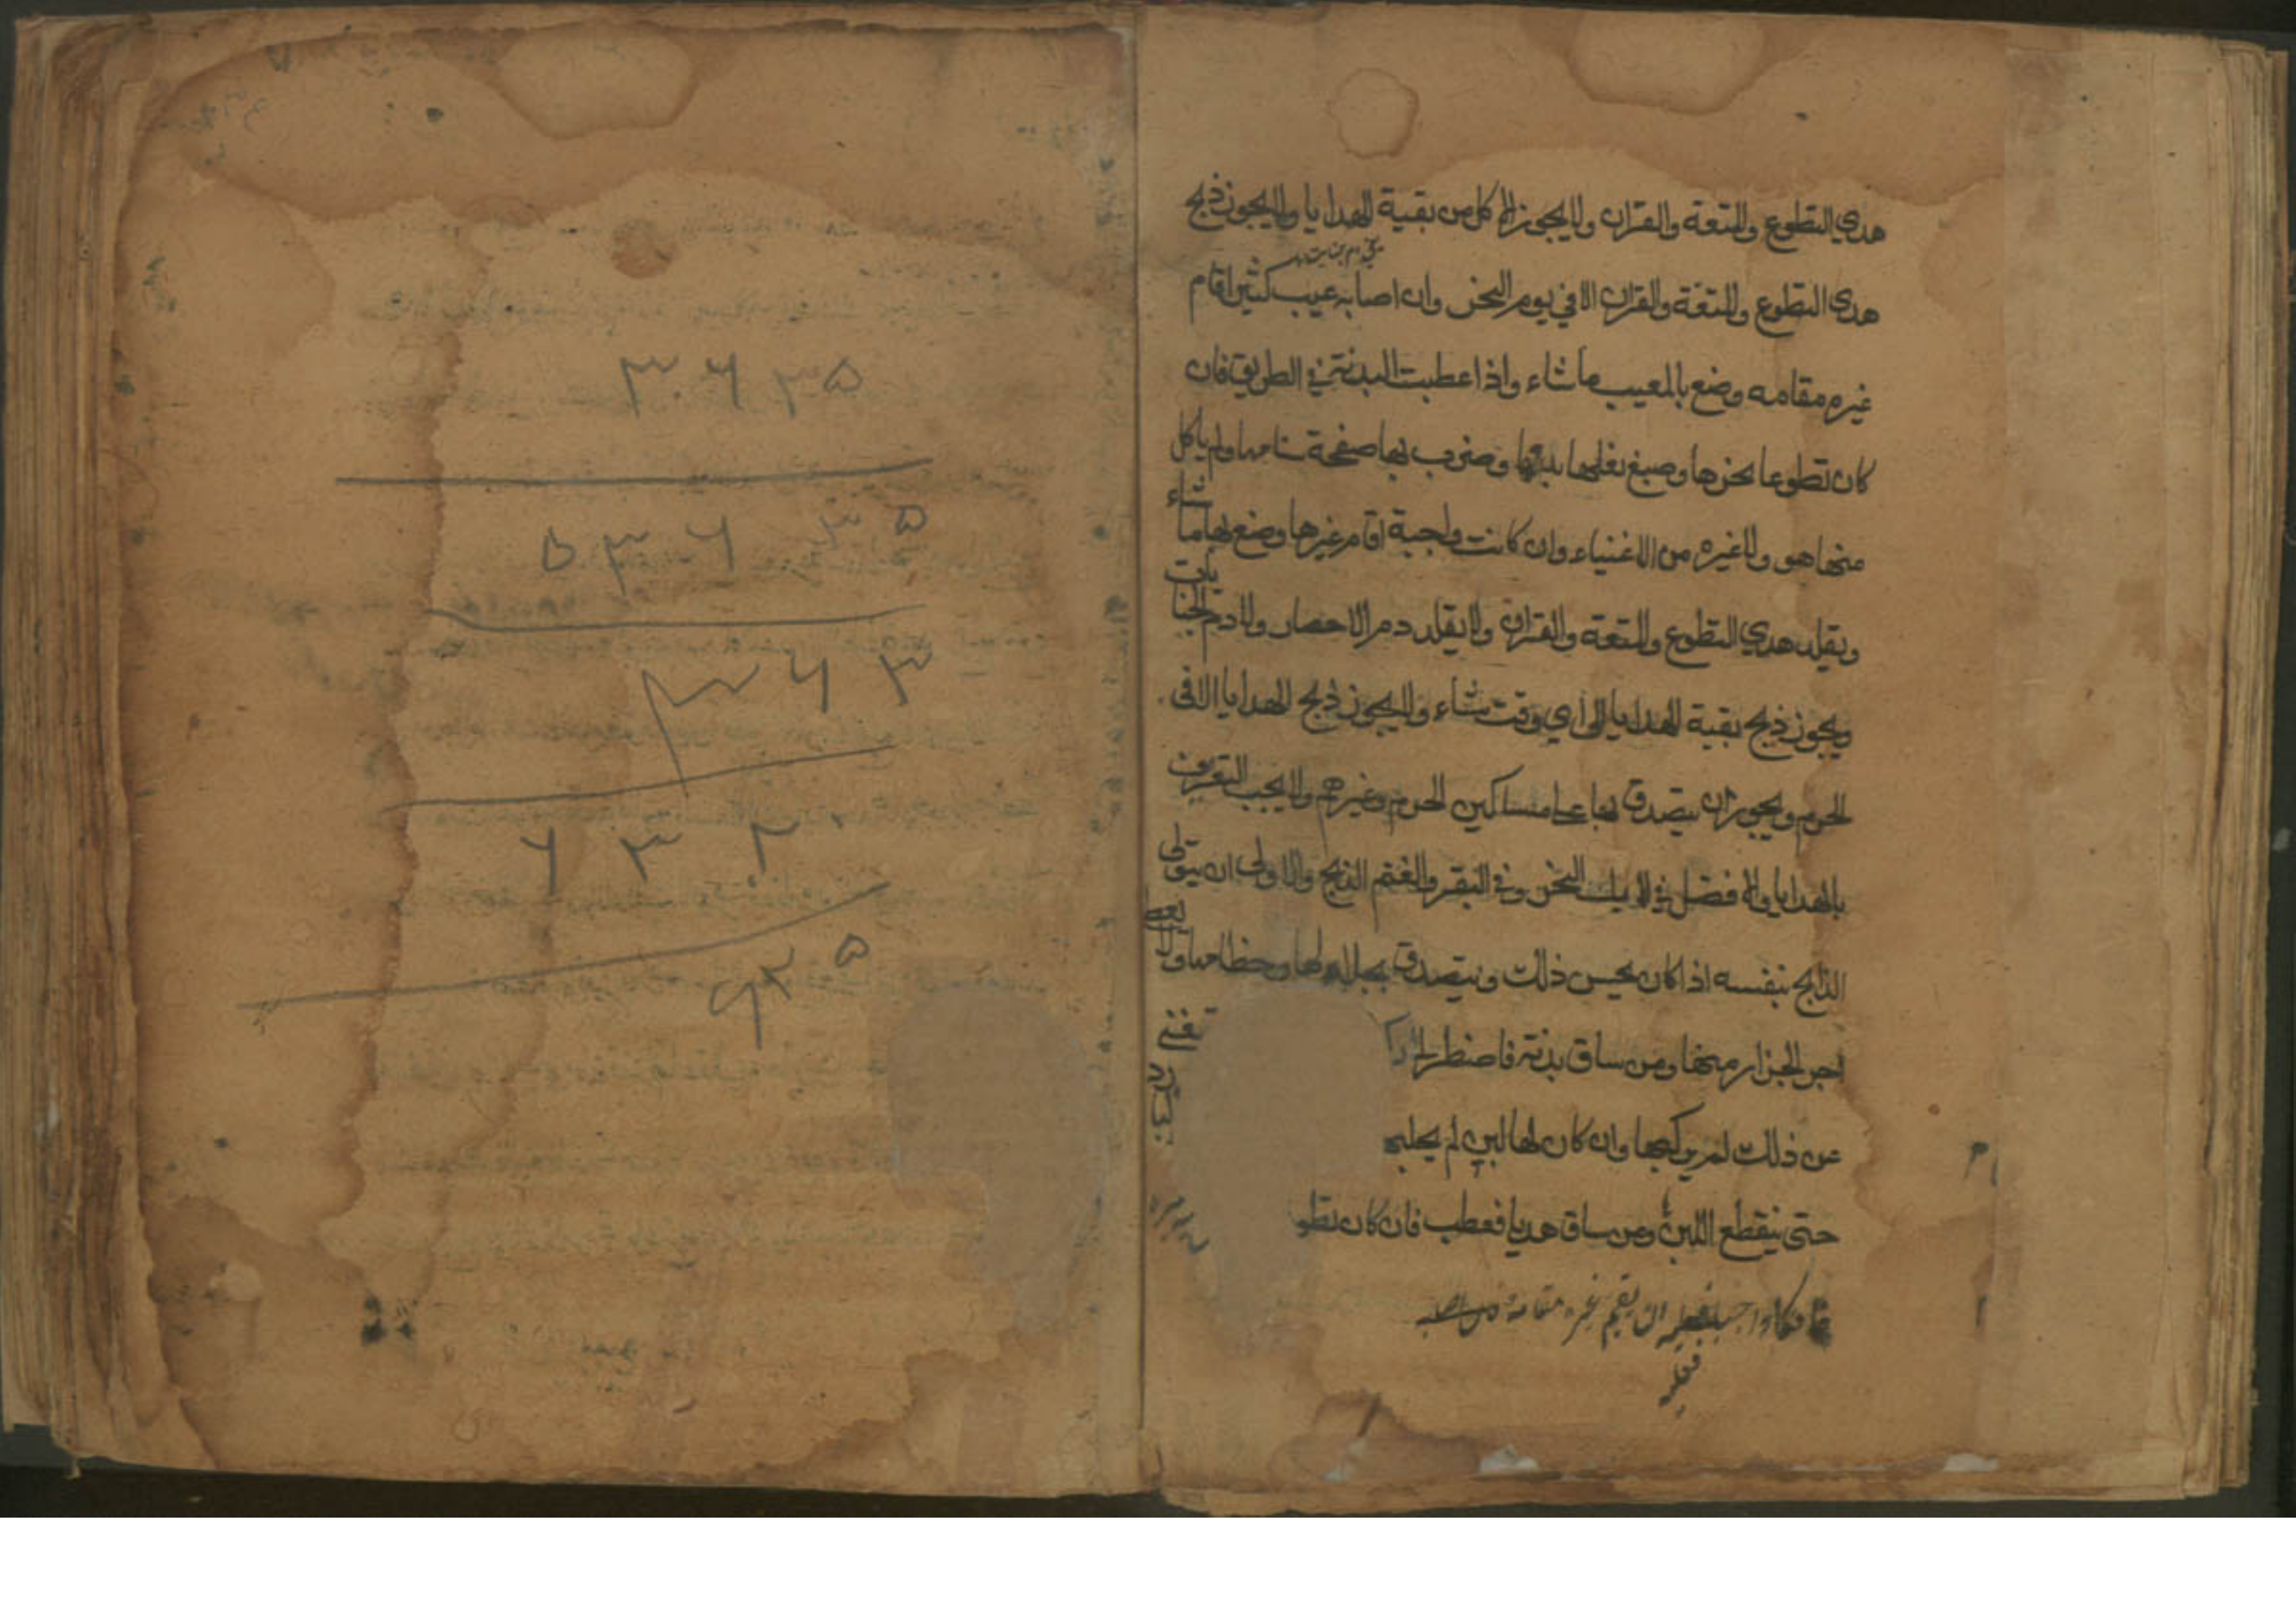 هدي التطوع والمتعة والقران ولا يجوز الاكل من بقية الهدايا ولا يجوز ذبح
هدي التطوع والمتعة والقران الا في يوم النحر وان اصابه عيب كثير اقام
غيره مقامه وضع بالمعيب ما شاء واذا عطبت البدنة في الطريق فان
كان تطوعا نحرها وصبغ نعلها بدمها وضرب بها صفحة سنامها ولم ياكل
منها هو ولا غيره من الاغنياء وان كانت واجبة اقام غيرها وضع بها ما شاء
ويقلد هدي التطوع والمتعة والقران ولا يقلد دم الاحصار ولا دم الجنايات
ويجوز ذبح بقية الهدايا الى اي وقت شاء ولا يجوز ذبح الهدايا الا في
الحرم ويجوز ان يتصدق بها على مساكين الحرم وغيرهم ولا يجب التعريف
بالهدايا والافضل في الابل النحر وفي البقر والغنم الذبح والاولى ان يتولى
الذابح بنفسه اذا كان يحسن ذلك ويتصدق بجلالها وخطامها ولا يعط
اجر الجزار منها ومن ساق بدنة فاضطر الى
عن ذلك لم يركبها وان كان لها لبن لم يحلبها
حتى ينقطع اللبن ومن ساق هديا فعطب فان كان تطو
عا فكان واجبا فعليه ان يقيم غيره مقامه
فعليه
۳۰۶ ۳۵
۵۳۰۶ ۳۵
۳۶۳
۶۳۲۰
۹۳۵